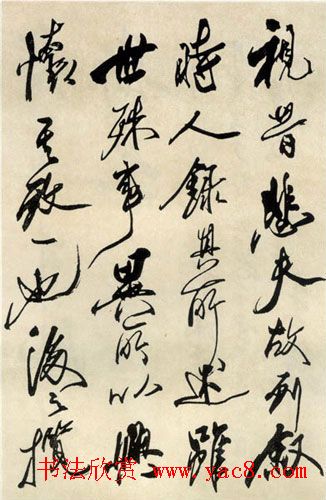 視昔悲夫故列敘
時人錄其所述雖
世殊事異所以興
懷其致一也後之攬
书法欣赏 www.yac8.com